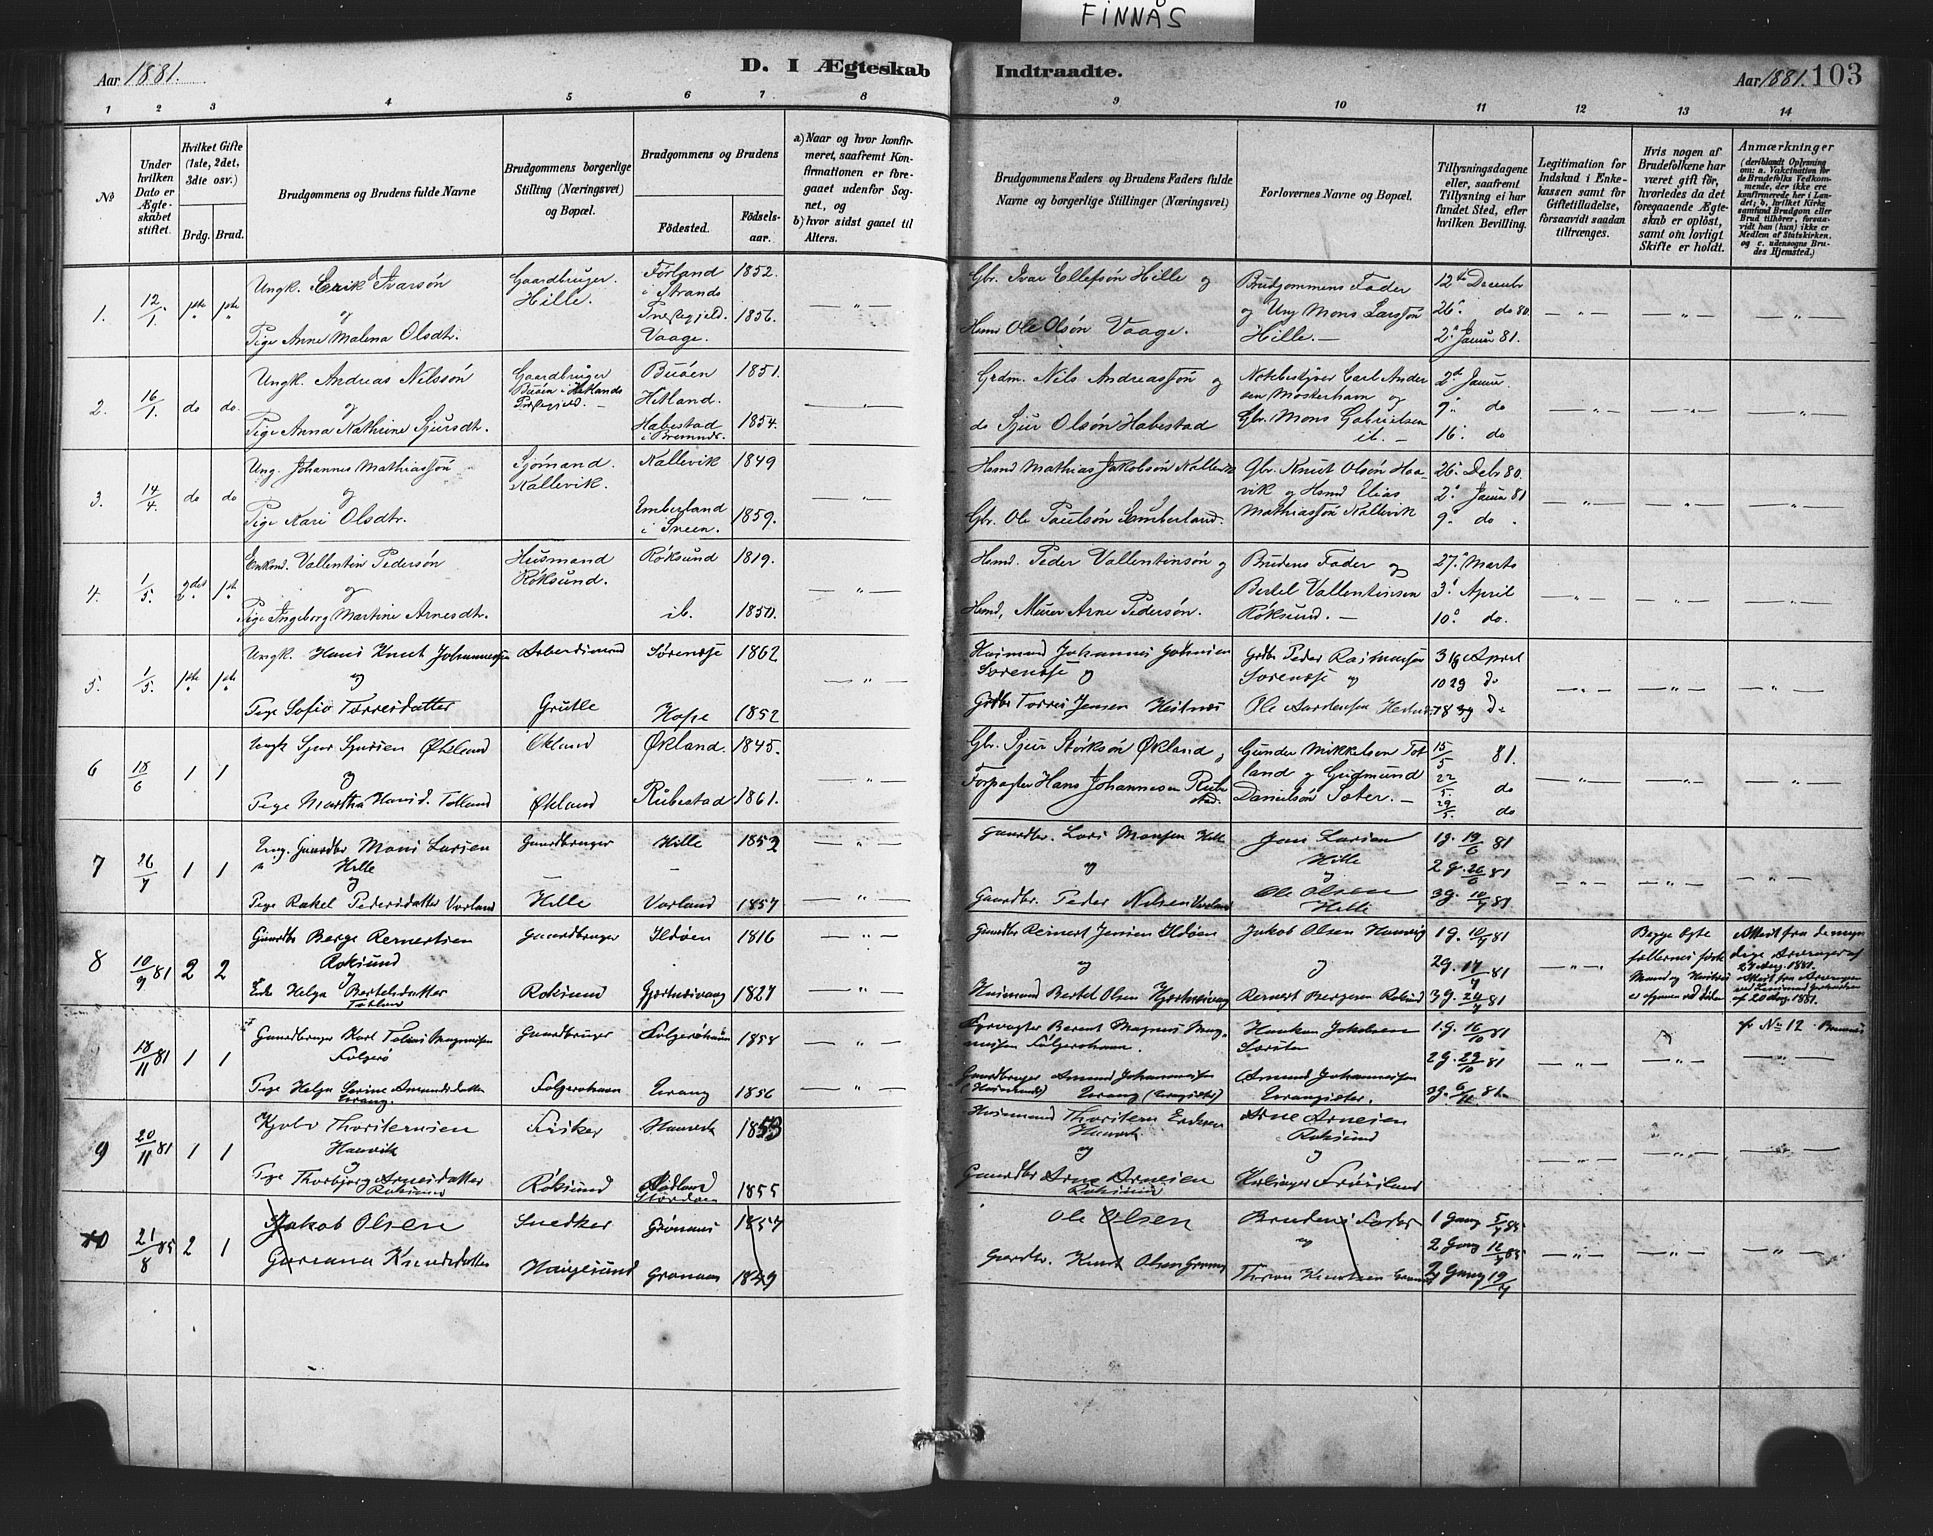 FINNÅS
Aar 1881.
D. I Ægteskab
Indtraadte.
Aar 1881. 103
1 2 3 4 5 6 7 8 9 10 11 12 13 14
No
Under hvilken Dato er Ægteskabet stiftet.
Hvilket Gifte (1ste, 2det, 3die osv.)
Brdg. Brud.
Brudgommens og Brudens fulde Navne
Brudgommens borgerlige Stilling (Næringsvei) og Bopæl.
Brudgommens og Brudens
Fødested.
Fødselsaar.
a) Naar og hvor konfirmeret, saafremt Konfirmationen er foregaaet udenfor Sognet, og
b) hvor sidst gaaet til Alters.
Brudgommens Faders og Brudens Faders fulde Navne og borgerlige Stillinger (Næringsvei)
Forlovernes Navne og Bopæl.
Tillysningsdagene eller, saafremt Tillysning ei har fundet Sted, efter hvilken Bevilling.
Legitimation for Indskud i Enkekassen samt for Giftetilladelse, forsaavidt saadan tiltrænges.
Hvis nogen af Brudefolkene har været gift før, hvorledes da det foregaaende Ægteskab er opløst, samt om lovligt Skifte er holdt.
Anmærkninger
(deriblandt Oplysning om: a. Vakcination for de Brudefolks Vedkommende, der ikke ere konfirmerede her i Landet; b, hvilket Kirkesamfund Brudgom eller Brud tilhører, forsaavidt han (hun) ikke er Medlem af Statskirken, og c. udensogns Brudes Hjemsted.)
1. 12/1. 1ste 1ste
Ungk. Erik Ivarsøn
og
Pige Anne Malena Olsdtr.
Gaardbruger
Hille.
Førland
i Strands
Præstegjeld.
Vaage.
1852.
1856.
Gbr. Ivar Ellefsøn Hille og
Hsmd Ole Olsøn Vaage.
Brudgommens Fader
og Ung Mons Larssøn
Hille. —
12te Decembr
26. do 80.
2. Januar 81.
2. 16/1. do do.
Ungk. Andreas Nilssøn
og
Pige Anna Kathrine Sjursdtr.
Gaardbruger
Buøen i Hetlands
Præstegjeld. —
Buøen
Hetland.
Habestad
i Bremnes.
1851.
1854.
Grdm. Nils Andreassøn og
do Sjur Olsøn Habestad
Notebestyrer Carl Andersen Mosterhavn og
Gbr. Mons Gabrielsen
ib. —
2. Januar
9. do
16. do
3. 14/4. do do
Ung. Johannes Mathiassøn
og
Pige Kari Olsdtr.
Sjømand.
Kallevik.
Kallevik
Emberland
i Sveen.
1849
1859.
Hsmd Mathias Jakobsøn Kallevik
Gbr. Ole Paulsøn Emberland.
Gbr. Knut Olsøn Haavik og Hsmd Elias
Mathiassøn Kallevik
26. Debr 80.
2. Januar 81
9. do.
4. 1/5. 2det 1ste
Enkm. Vallentin Pedersøn
og
Pige Ingeborg Martine Arnesdtr.
Husmand
Røksund.
Røksund
ib.
1819.
1850.
Hsmd. Peder Vallentinsøn og
Hsmd, Murer Arne Pedersøn.
Brudens Fader og
Bertel Vallentinsen
Røksund. —
27. Marts
3. April
10. do.
5. 1/5. 1ste 1ste
Ungk. Hans Knut Johannessen
og
Pige Sofie Torresdatter
Arbeidsmand
Grutle
Sørensæ
1862
1852
Husmand Johannes Johnsen
Sørensæ og
Grdbr Torres Jensen Heitnæs
Grdbr Peder Rasmussen
Sørensæ og
Ole
3 1g April
10 2g do
18 3g do
6 18/6 1 1
Ungk Sjur Sjursen Økland
og
Pige Martha Hansd. Totland
Økland
Økland
Økland.
Rubestad
1845.
1861.
Gbr. Sjur Størksøn Økland,
Forpagter Hans Johannesen Rubestad.
Gunder Mikkelsen Totland og Gudmund
Danielsøn Sæter. —
15/5 81.
22/5. do
29/5. do
7 26/7 1 1
Ung. Gaardbr Mons Larsen
Hille
og
Pige Rakel Pedersdatter Vorland
Gaardbruger
Hille
Hille
Vorland
1852
1857
Gaardbr. Lars Monsen Hille
og
Gaardbr. Peder Nilsen Vorland
Jens Larsen
Hille
og
Ole Olsen
Hille
1g. 19/6 81
2g. 26/6 81
3g. 10/7 81.
8 10/9 81 2 2
Gaardbr Berge Rernertsen
Roksund
og
Enke Helga Bertelsdatter
Gaardbruger
Roksund
Ildøen
Gjertnesvaag
1816
1827
Gaardbr Reinert Jensen Ildøen
og
Husmand Bertel Olsen Hjertnesvaag
Jakob Olsen Haavig
og
Rernert Bergesen Roksund
1g. 10/7 81
2g. 17/7 81
3g. 24/7 81
Begge Egtefællernes første
Mand og Hustru
er afgaaen ved Døden
Attest fra
27 Aug. 1881.
af 20 Aug 1881.
18/11 81 1 1
Gaardbruger Karl Tobias Magnussen
Folgerø
Pige Helga Serine Amundsdatter
Evang.
Gaardbruger
Folgerøhavn
Folgerøhavn
Evang
1858
1856
Fyrvogter Berent Magnus Magnussen Folgerohavn.
Gaardbruger Amund Johannessen
Haakon Jakobsen
Amund Johannessen
1g. 16/10 81
2g. 29/10 81
3g. 6/11 81.
No 12
9 20/11 81 1 1
Thorstensen
Haavik
og
Pige Thorbjørg Arnesdatter
Roksund
Fisker
Røksund
Haavik
Rødland
Storden
1853
1855
Husmand Thorsten
Haavik
og
Gaardbr Arne Arnesen
Roksund
Arne Arnesen
Roksund
og
Frøisland
10 21/8 85 2 1
Jakob Olsen
Goreana Knudsdatter
Snedker
Haugesund
Grønaas
Gronaas
1857
1849
Ole Olsen
Gaardbr. Knut Olsen Grønaas
Brudens Fader
og
Knutsen
1 Gang 5/7 85
2 Gang 12/7 85
2 Gang 19/7